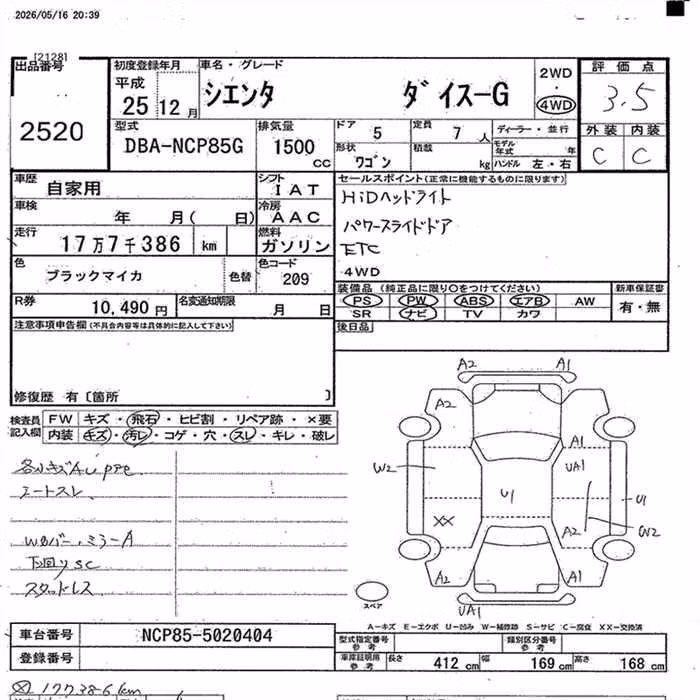 2026/05/16 20:39
[2128]
出品番号
2520
初度登録年月
平成
25 12 月
車名・グレード
シエンタ ダイス-G
2WD
・
4WD
評価点
3.5
外装 内装
C C
型式
DBA-NCP85G
排気量
1500 cc
ドア
5
定員
7 人
ディーラー・並行
形状
ワゴン
積載
kg
モデル年式 年
ハンドル 左・右
車歴
自家用
シフト
IAT
車検
年 月( 日)
冷房
AAC
走行
17万7千386 km
燃料
ガソリン
色
ブラックマイカ
色替
色コード
209
R券
10,490 円
名変通知期限
月 日
セールスポイント(正常に機能するものに限ります)
HiDヘッドライト
パワースライドドア
ETC
4WD
装備品(純正品に限り○をつけてください)
PS PW ABS エアB AW
SR ナビ TV カワ
新車保証書
有・無
後日品
注意事項申告欄(不具合内容等は具体的に記入して下さい)
修復歴 有〔箇所 〕
検査員
記入欄
FW キズ・飛石・ヒビ割・リペア跡・×要
内装 キズ・汚レ・コゲ・穴・スレ・キレ・破レ
シートスレ
Wカバー、ミラーA
下回りSC
スタッドレス
A2 A1
A2
A1
W2
UA1
U1
U1
XX
A2
W2
A2
A1
UA1
スペア
A-キズ E-エクボ U-凹み W-補修跡 S-サビ C-腐食 XX-交換済
車台番号
NCP85-5020404
登録番号
型式指定番号
参考
類別区分番号
参考
車庫証明用
参考
長さ 412 cm 幅 169 cm 高さ 168 cm
177386km